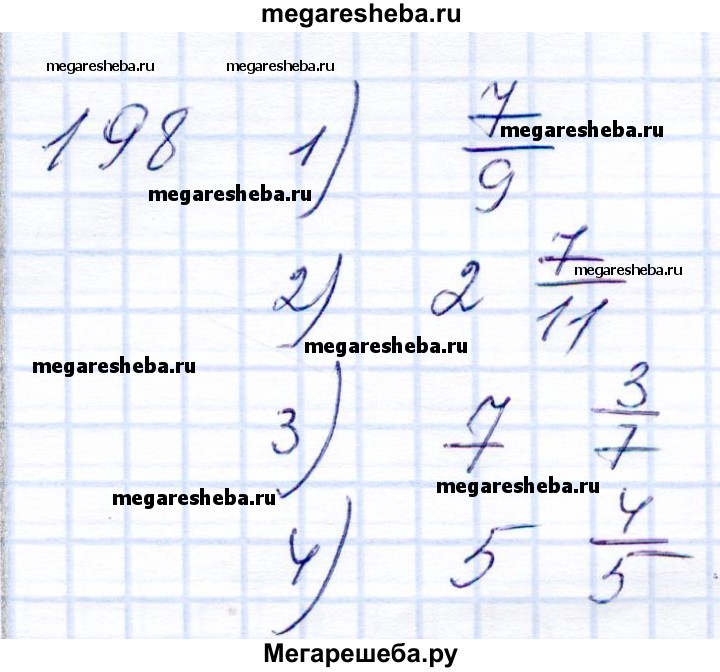 megaresheba.ru
megaresheba.ru megaresheba.ru
198 1) 7/9
megaresheba.ru
megaresheba.ru
2) 2 7/11
megaresheba.ru
megaresheba.ru
megaresheba.ru
3) 7 3/7
megaresheba.ru
megaresheba.ru
4) 5 4/5
Мегарешеба.ру